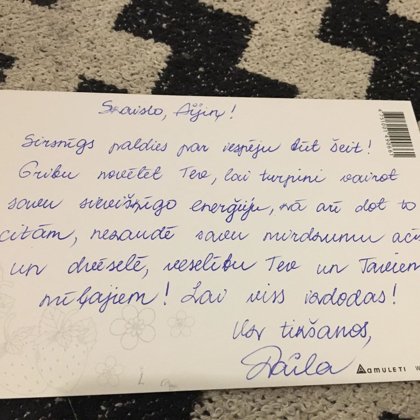 Skaisto, Aijiņ!
Sirsnīgs paldies par iespēju būt šeit!
Gribu novēlēt Tev, lai turpini vairot
savu sievišķīgo enerģiju, kā arī dot to
citām, nezaudē savu mirdzumu acīs
un dvēselē, veselību Tev un Taviem
mīļajiem! Lai viss izdodas!
Uz tikšanos,
AMULETI